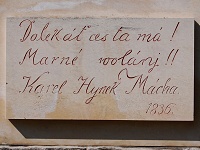 Daleká tˇ cesta má!
Marné wolány!!
Karel Hynek Mácha.
1836.